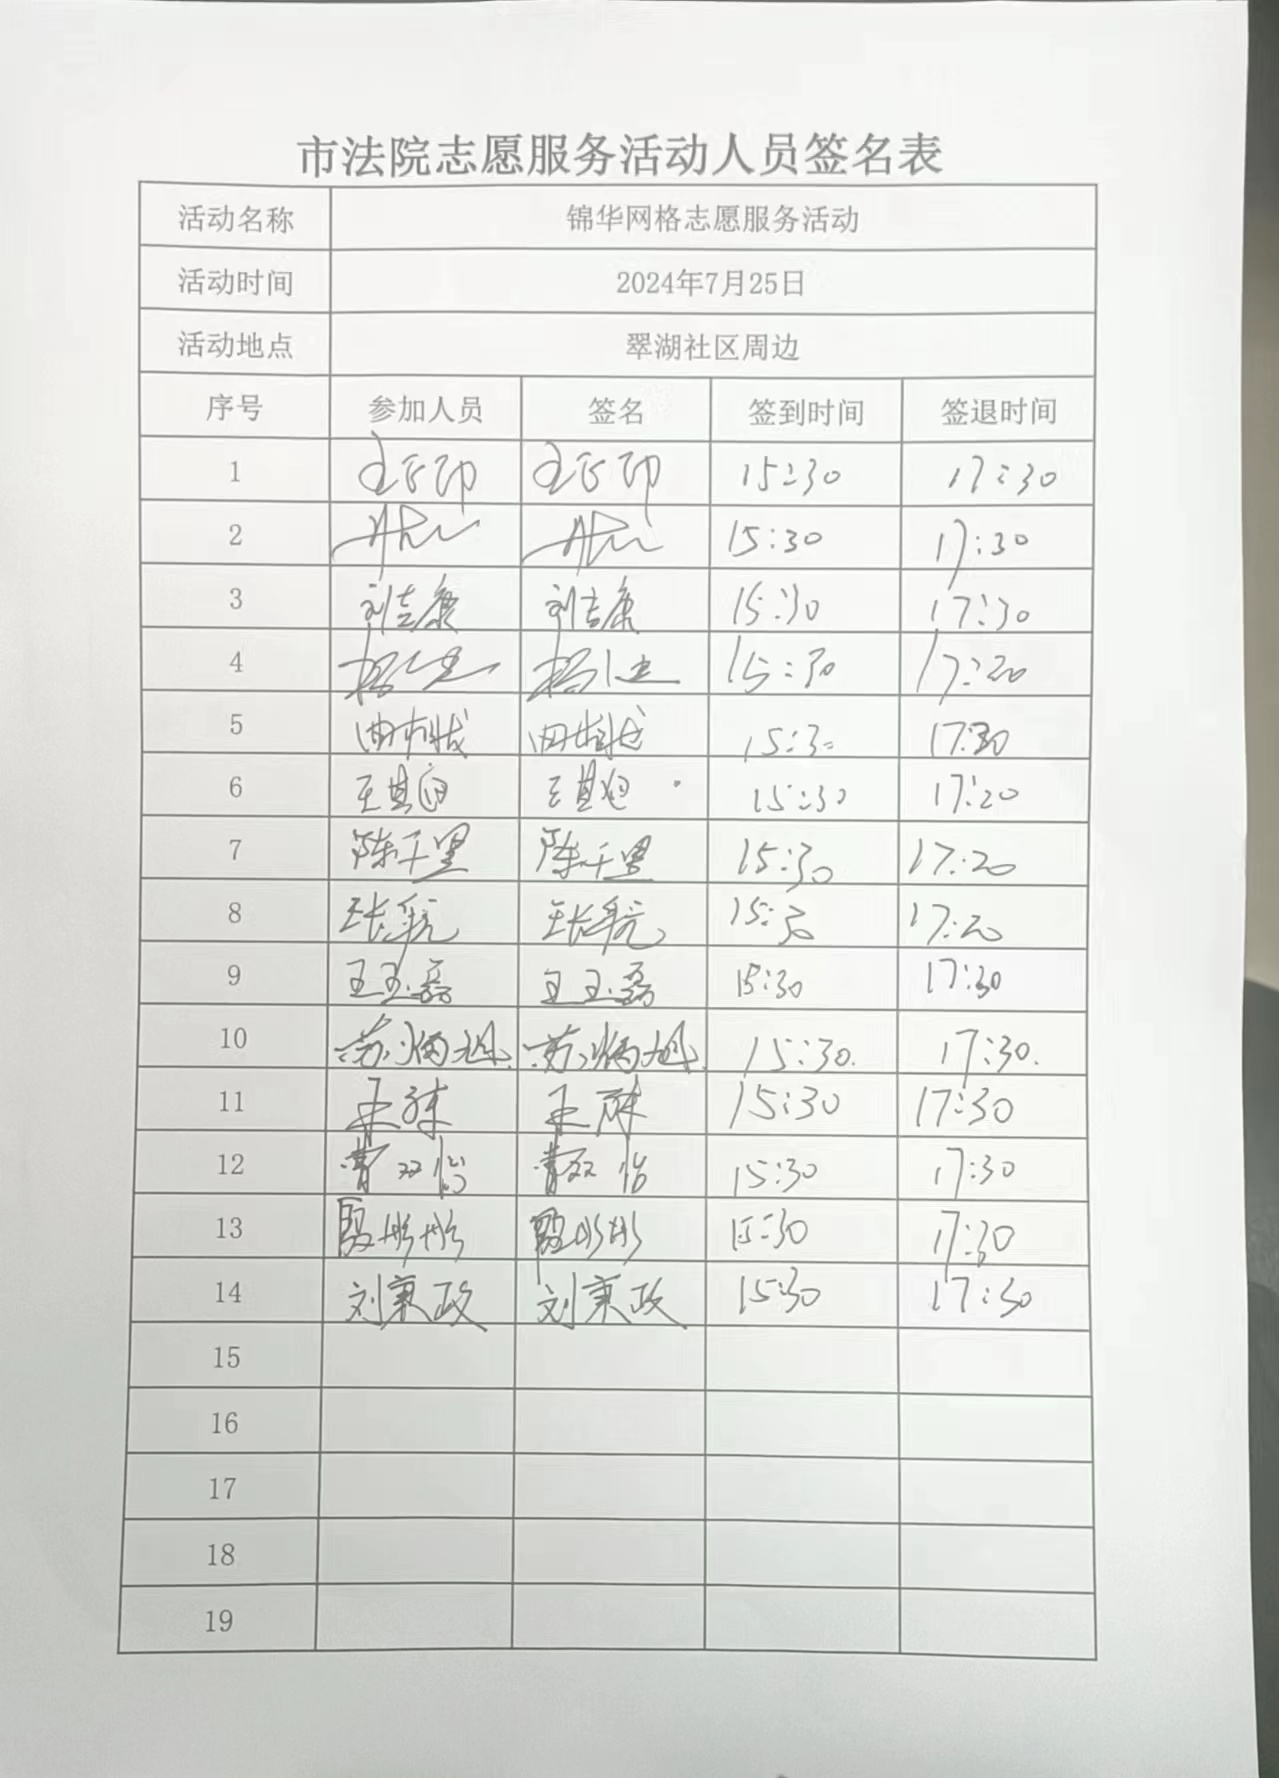 市法院志愿服务活动人员签名表
活动名称 锦华网格志愿服务活动
活动时间 2024年7月25日
活动地点 翠湖社区周边
序号 参加人员 签名 签到时间 签退时间
1 15:30 17:30
2 15:30 17:30
3 刘吉康 刘吉康 15:30 17:30
4 15:30 17:20
5 15:30 17:30
6 15:30 17:20
7 陈千里 陈千里 15:30 17:20
8 15:30 17:20
9 王玉磊 王玉磊 15:30 17:30
10 苏炳旭 苏炳旭 15:30. 17:30.
11 15:30 17:30
12 曹双怡 曹双怡 15:30 17:30
13 段彤彤 段彤彤 15:30 17:30
14 刘秉政 刘秉政 15:30 17:30
15
16
17
18
19